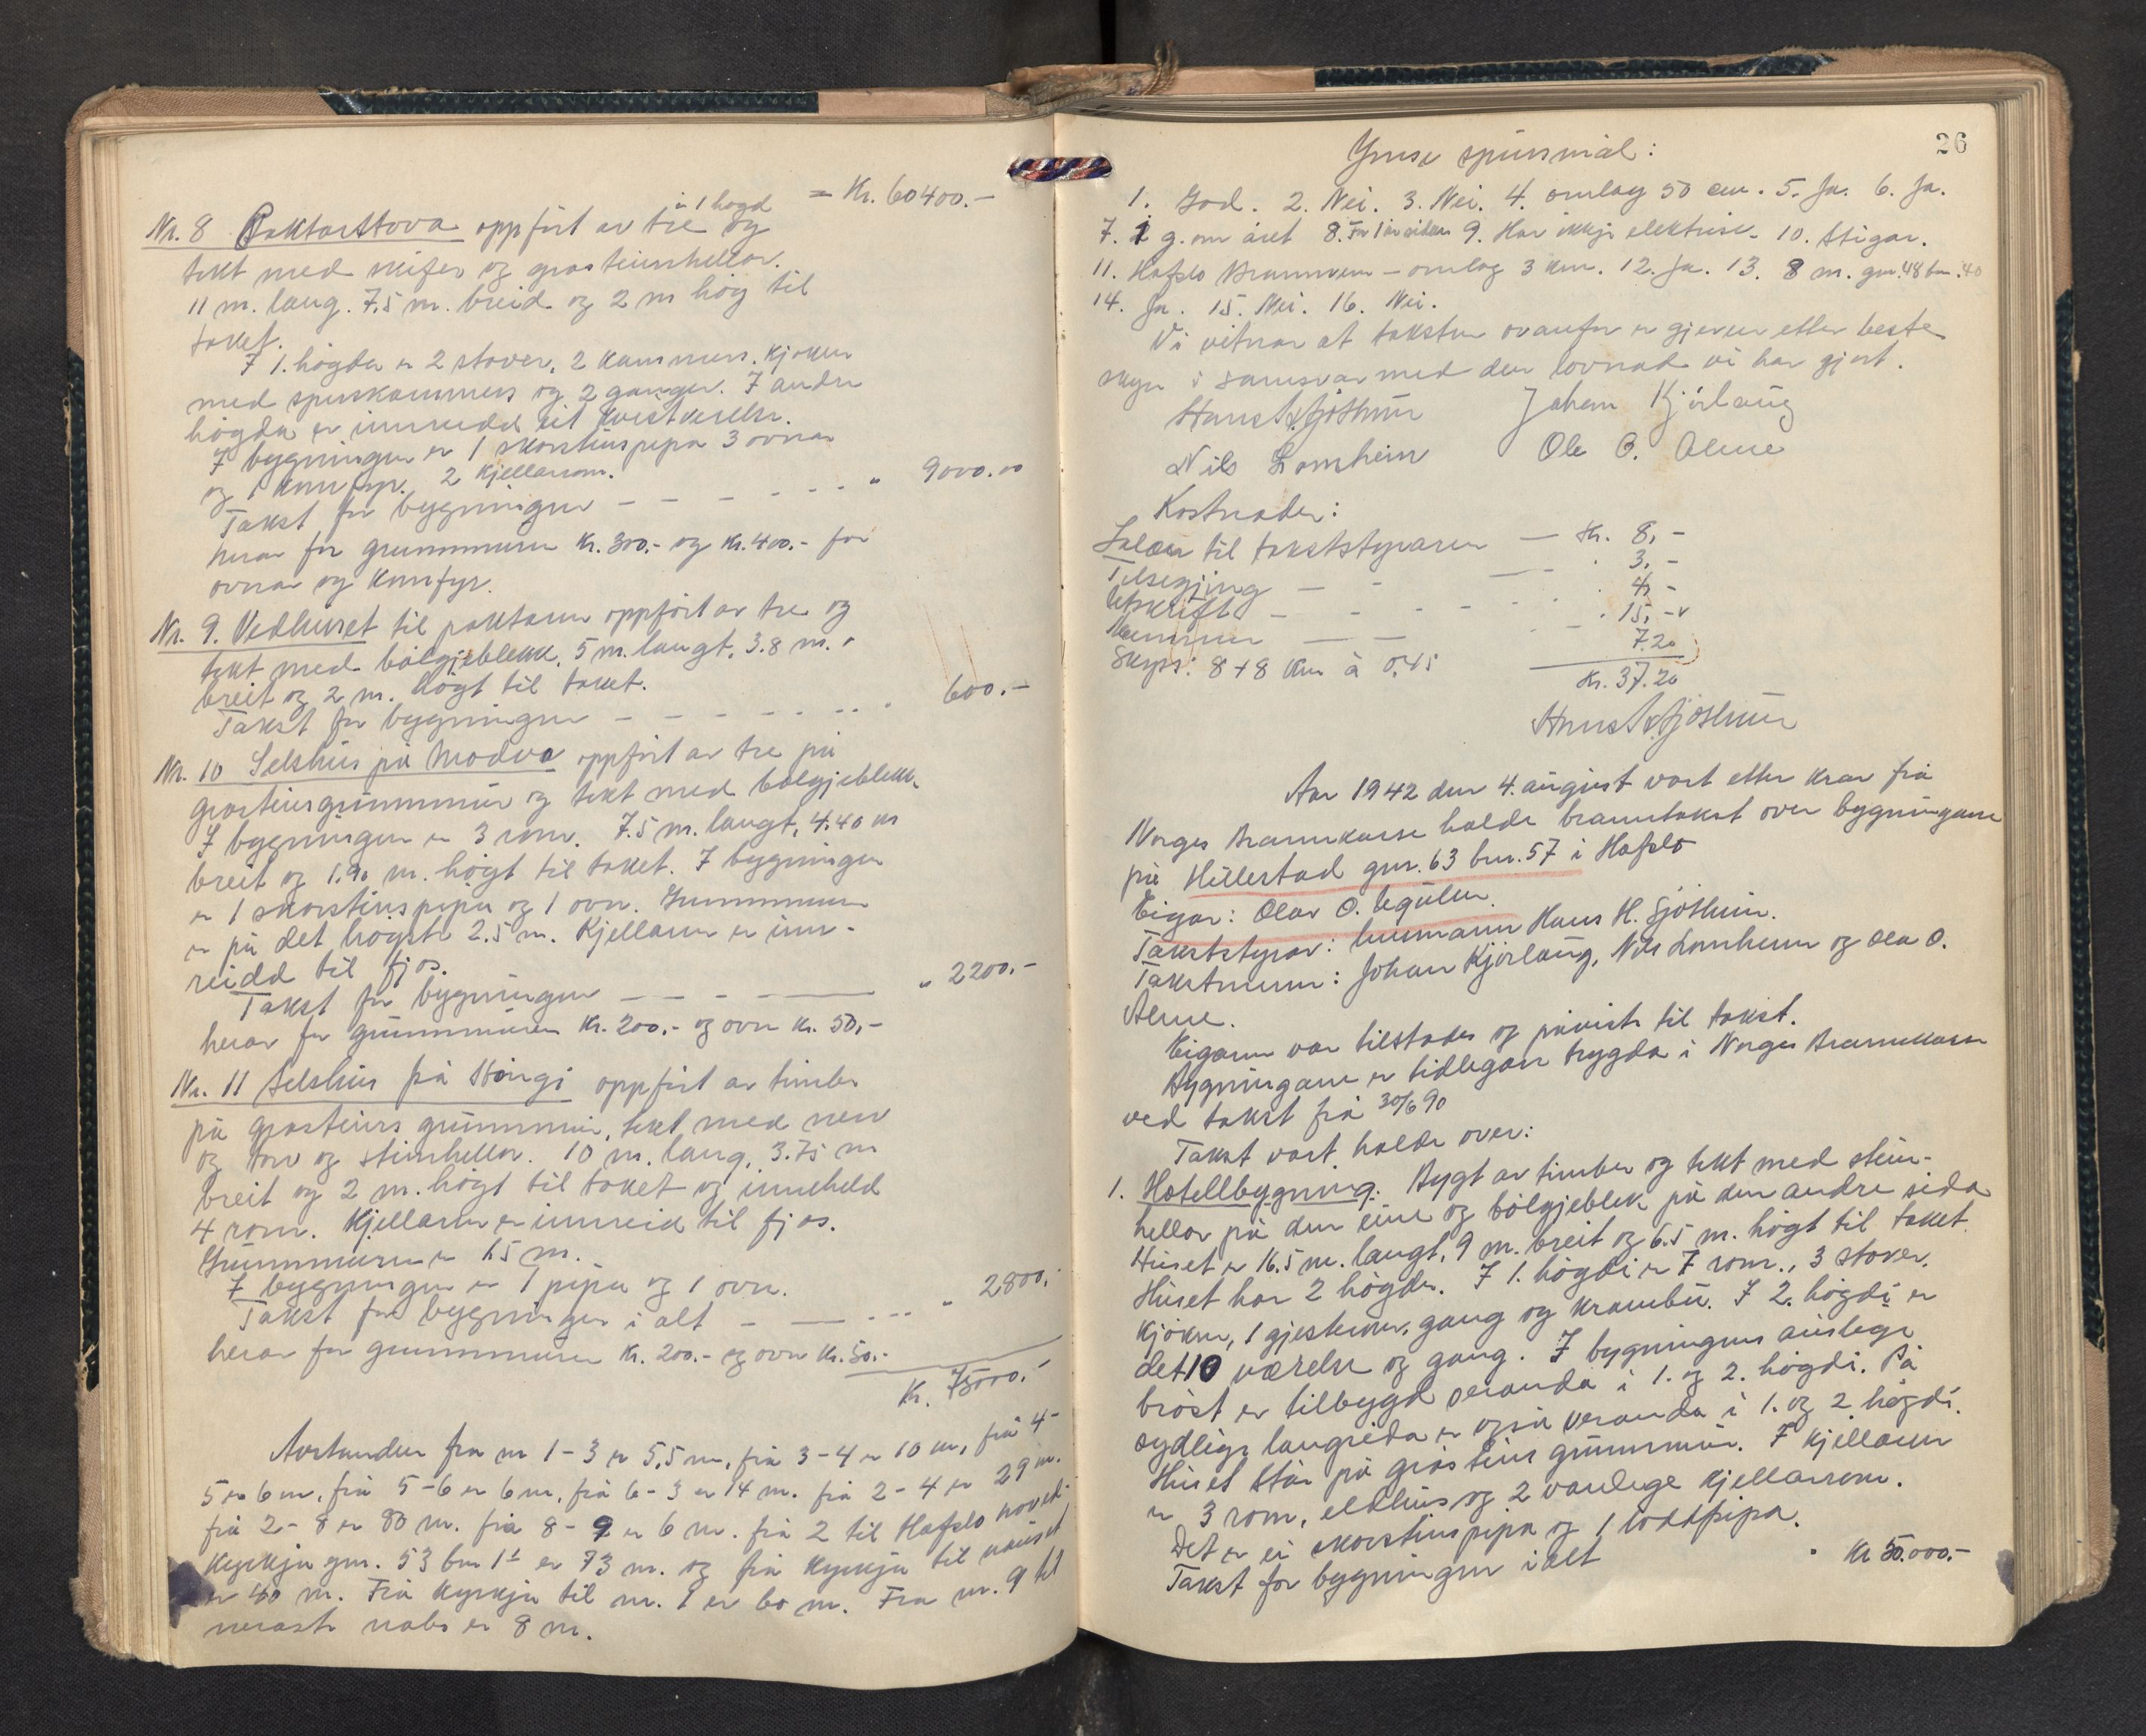 = Kr. 60400.-
Nr. 8 Paktarstova oppført av tre i 1 høgd og
tekt med skifer og gråsteinshellor.
11 m. lang. 7,5 m. breid og 2 m høg til
taket.
I 1. høgda er 2 stover, 2 kammers. Kjøken
med spiskammers og 2 ganger. I andre
høgda er innreidd eit kvistverelse.
I bygningen er 1 skorsteinspipa 3 ovnar
og 1 komfyr. 2 kjellarrom.
Takst for bygningen - - - - - - " 9000.00
herav for grunnmuren Kr. 300.- og Kr. 400.- for
ovnar og komfyr.
Nr. 9. Vedhuset til paktaren oppført av tre og
tekt med bølgjeblekk. 5 m. langt, 3.8 m.
breit og 2 m. høgt til taket.
Takst for bygningen - - - - - - - 600.-
Nr. 10 Selshus på Modva oppført av tre på
gråsteinsgrunnmur og tekt med bølgjeblekk.
I bygningen er 3 rom. 7.5 m. langt, 4.40 m
breit og 1.90 m. høgt til taket. I bygningen
er 1 skorsteinspipa og 1 ovn. Grunnmuren
er på det høgste 2.5 m. Kjellaren er inn-
reidd til fjøs.
Takst for bygningen - - - - " 2200.-
herav for grunnmuren Kr. 200.- og ovn Kr. 50,-
Nr. 11 Selshus på Stongi oppført av timber
på gråsteins grunnmur, tekt med never
og torv og steinhellor. 10 m. lang, 3.75 m
breit og 2 m. høgt til taket og inneheld
4 rom. Kjellaren er innreid til fjøs.
Grunnmuren er 1.5 m.
I bygningen er 1 pipa og 1 ovn.
Takst for bygningen i alt - - - - " 2800.-
herav for grunnmuren Kr. 200.- og ovn Kr. 50.-
Kr. 75000.-
Avstanden fra nr 1-3 er 5,5 m, frå 3-4 er 10 m, frå 4-
5 er 6 m, frå 5-6 er 6 m, frå 6-3 er 14 m. frå 2-4 er 29 m.
frå 2-8 er 80 m. frå 8-9 er 6 m. frå 2 til Hafslo hoved-
kyrkja gnr. 53 bnr 1 er 73 m. og frå kyrkja til nauset
er 40 m. Frå kyrkja til nr. 1 er 60 m. Fra nr. 9 til
næraste nabo er 8 m.
26
Ymse spursmål:
1. God. 2. Nei. 3. Nei. 4. omlag 50 cm. 5. Ja. 6. Ja.
7. 1 g. om året 8. For 1 år siden 9. Har ikkje elektrisi. 10. Stigar.
11. Hafslo Brannvern - omlag 3 km. 12. Ja. 13. 8 m. gnr. 48 bnr. 40
14. Ja. 15. Nei. 16. Nei.
Vi vitnar at taksten ovanfor er gjeven etter beste
skyn i samsvar med den lovnad vi har gjort.
Hans H. Sjøthun Johan Kjørlaug
Nils Lomheim Ole O. Alme
Kostnader:
Salær til takststyraren - Kr. 8,-
Tilsegjing - - - 3,-
Utskrift - - - - 4,-
Mennene - - - 15,-
Skyss: 8+8 km à 0,45 7.20
Kr. 37.20
Hans H. Sjøthun
Aar 1942 den 4. august vart etter krav frå
Norges Brannkasse halde branntakst over bygningane
på Hillestad gnr. 63 bnr. 57 i Hafslo
Eigar: Olav O. Ugulen.
Takststyrar: lensmann Hans H. Sjøthun.
Takstmenn: Johan Kjørlaug, Nils Lomheim og Ola O.
Alme.
Eigaren var tilstades og påviste til takst.
Bygningane er tidlegare trygda i Norges Brannkasse
ved takst frå 30/6 90
Takst vart halde over:
1. Hotellbygning: Bygt av timber og tekt med stein-
hellor på den eine og bølgjeblek på den andre sida
Huset er 16.5 m. langt, 9 m. breit og 6.5 m. høgt til taket.
Huset har 2 høgder. I 1. høgdi er 7 rom., 3 stover,
kjøken, 1 gjesterom, gang og krambu. I 2. høgdi er
det 10 værelse og gang. I bygningens austlege
brøst er tilbygd veranda i 1. og 2. høgdi. På
sydlige langsida er også veranda i 1. og 2 høgdi.
Huset står på gråsteins grunnmur. I kjellaren
er 3 rom, eldhus og 2 vanlege kjellarrom.
Det er ei skorsteinspipa og 1 loddpipa.
Takst for bygningen i alt . Kr 50.000.-